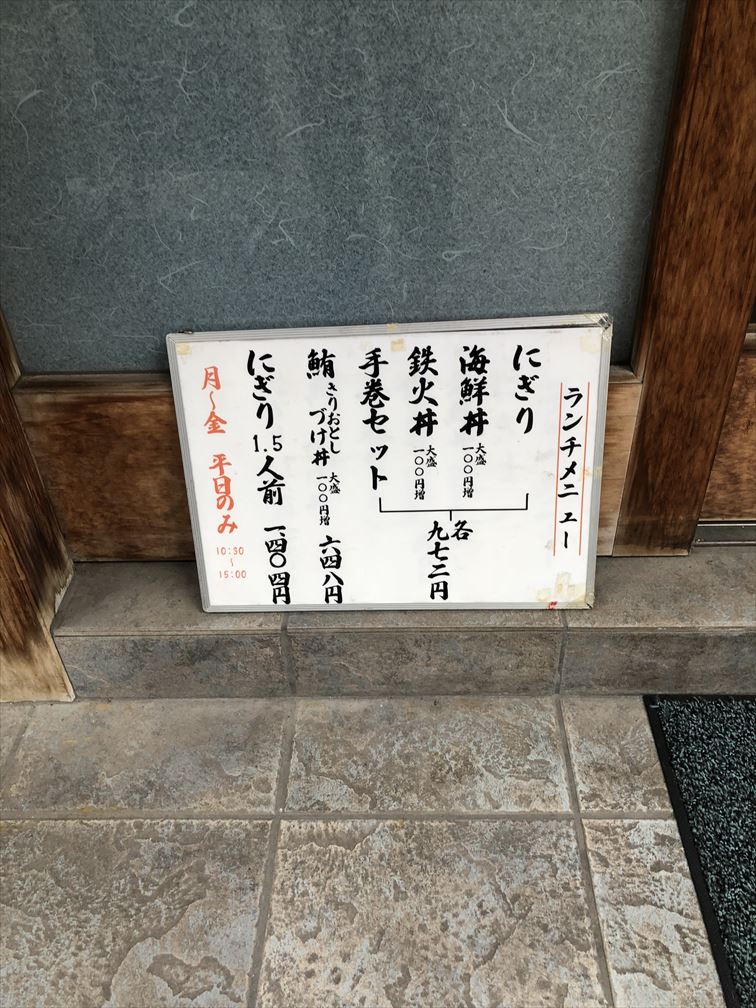 ランチメニュー
にぎり
海鮮丼 大盛一〇〇円増
鉄火丼 大盛一〇〇円増
手巻セット
各九七二円
鮪きりおとしづけ丼 大盛一〇〇円増 六四八円
にぎり1.5人前 一、四〇四円
月〜金 平日のみ
10:30〜15:00